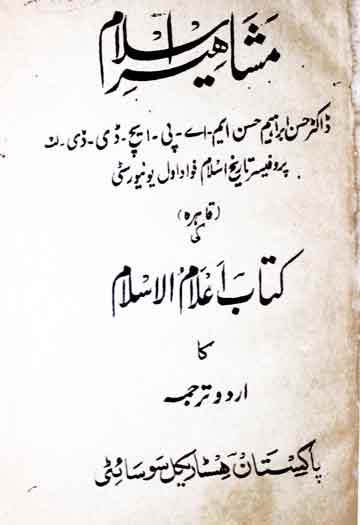 مشاہیر اسلام
ڈاکٹر حسن ابراہیم حسن ایم-اے-پی-ایچ-ڈی-ڈی-لٹ
پروفیسر تاریخ اسلام فواد اول یونیورسٹی
(قاہرہ)
کی
کتاب اَعلامُ الاسلام
کا
اردو ترجمہ
پاکستان ہسٹاریکل سوسائٹی